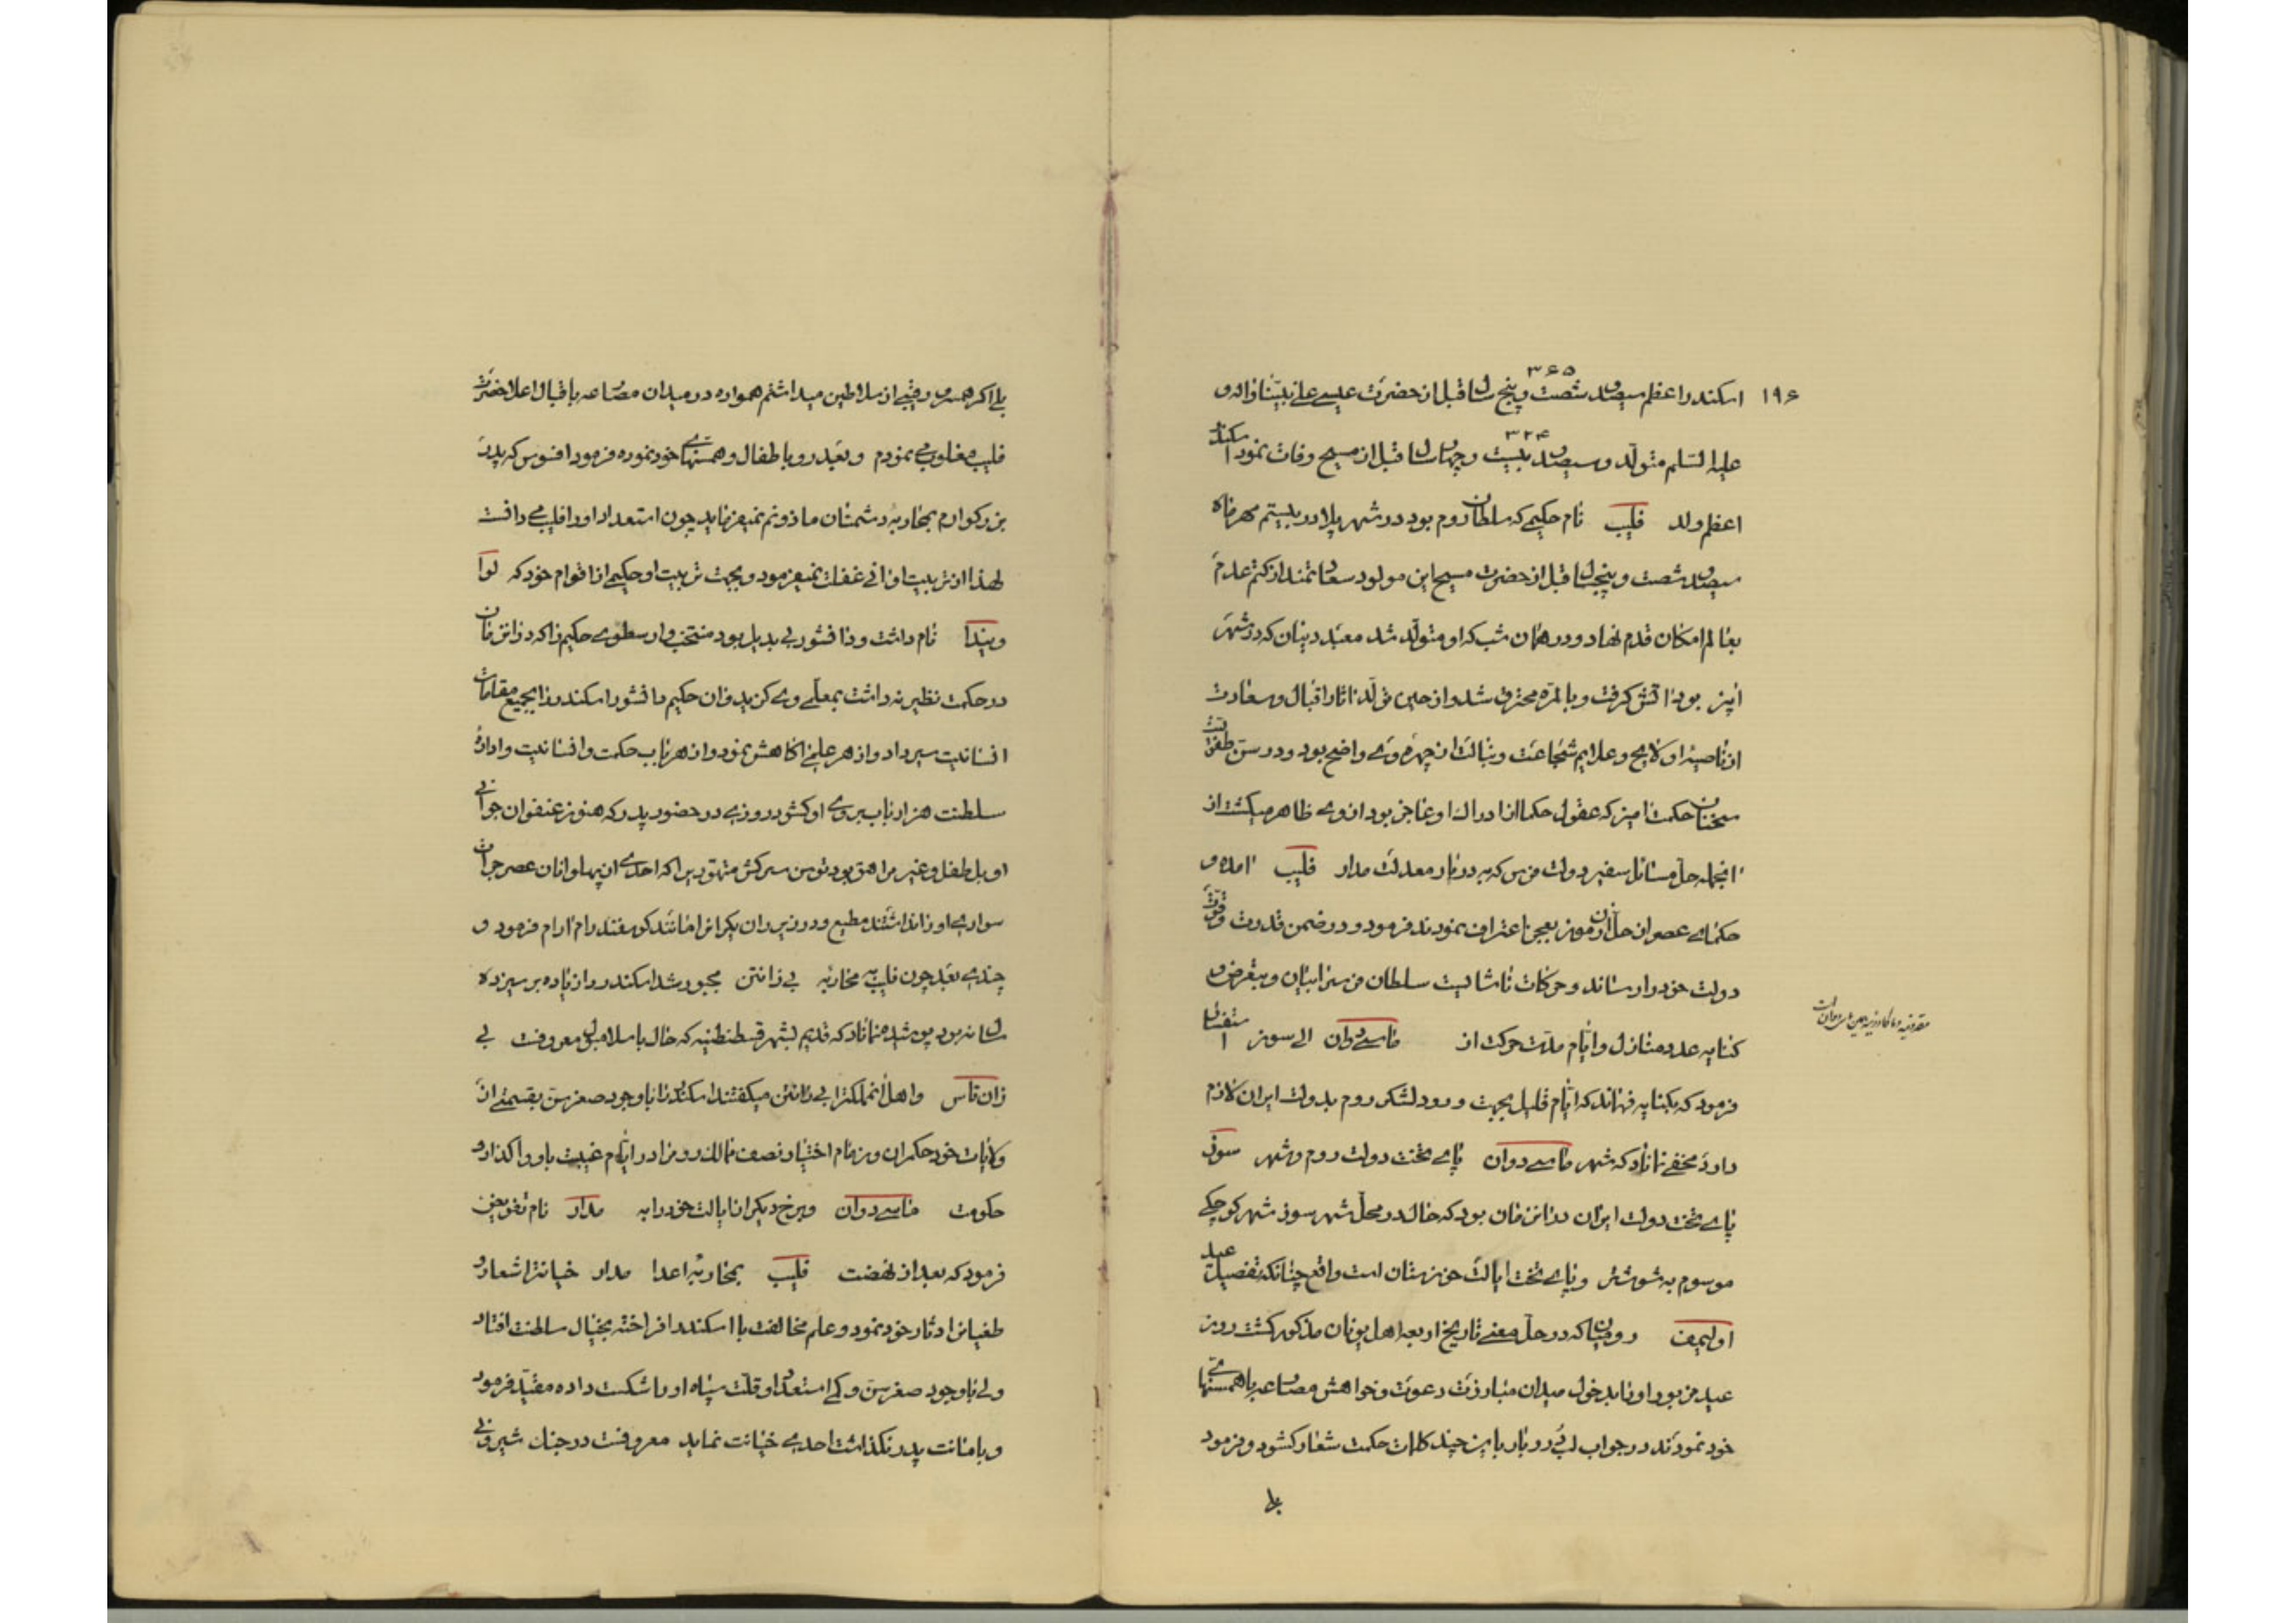 ۳۶۵
۱۹۶ اسکندر اعظم سیصد و شصت و پنج سال قبل از حضرت عیسی علی نبینا و اله و
۳۲۴
علیه السلم متولد و سیصد و بیست و چهار سال قبل از مسیح وفات نمود اسکندر
اعظم ولد فلیب نام حکیمی که سلطان روم بود در شهر پلا در بیستم مهر ماه
سیصد و شصت و پنجسال قبل از حضرت مسیح این مولود سعادتمند از کتم عدم
بعالم امکان قدم نهاد و در همان شب که او متولد شد معبد دینان که در شهر
ایز بود اتش گرفت و بالمره محترق شد و از حین تولد اثار اقبال و سعادت
از ناصیه او لایح و علایم شجاعت و نبالت از چهره وی واضح بود و در سن طفولیت
سخنان حکمت امیز که عقول حکما از ادراک او عاجز بود از وی ظاهر میگشت از
انجمله حل مسائل سفیر دولت فرس که به دربار معدلت مدار فلیب امده و
حکمای عصر از حل آن رموز بعجز اعتراف نمودند فرمود و در ضمن قدرت و قوت
دولت خود را رساند و حرکات ناشایست سلطان فرس را بیان و بتعرض و
کنایه عدد منازل و ایام مدت حرکت از ماسے دوان الی سوز استفسار
فرمود که بکنایه فهماند که ایام قلیل بجهت ورود لشکر روم بدولت ایران لازم
دارد مخفی نماناد که شهر ماسے دوان پای تخت دولت روم و شهر سوز
پای تخت دولت ایران در انزمان بود که حال در محل شهر سوز شهر کوچکی
موسوم به شوشتر و پای تخت ایالت خوزستان است واقع چنانکه تفصیل عید
اولیمف رومیان که در حل معنی تاریخ اربعه اهل یونان مذکور گشت روز
عید مزبور او را بدخول میدان مبارزت دعوت و خواهش مصارعه با همسنهای
خود نمودند در جواب لب درربار باین چند کلمات حکمت شعار گشود و فرمود
بلی
بلی اگر همسر و رقیبی از سلاطین میداشتم همواره در میدان مصارعه باقبال اعلاحضرت
فلیب مغلوب می نمودم و بعد رو باطفال و همسنهای خود نموده فرمود افسوس که پدر
بزرگوارم بمحاربه دشمنان ماذونم نمیفرماید چون استعداد او را فلیب می دانست
لهذا از تربیت او انی غفلت نمیفرمود و بجهت تربیت او حکیمی از اقوام خود که لوا
ویندا نام داشت و دانشور بی بدیل بود منتخب و ارسطوی حکیم را که در انزمان
در حکمت نظیر نداشت بمعلمی وی گزید و ان حکیم دانشور اسکندر را بجمیع مقامات
انسانیت سیر داد و از هر علمی اگاهش نمود و از هر باب حکمت و انسانیت و اداره
سلطنت هزار باب بروی او گشود روزی در حضور پدر که هنوز عنفوان جوانی
او بل طفل و غیر مراهق بود توسن سرکش متهوری را که احدی از پهلوانان عصر جرات
سواری او را نداشتند مطیع و در زیر ران یکران مانند گوسفند رام ارام فرمود و
چندی بعد چون فلیب به محاربه بی زانتن مجبور شد اسکندر را زیاده بر سیزده
سال نبود پوشیده مماناد که قدیم بشهر قسطنطنیه که حال باسلامبول معروفست بی
زان تاس و اهل انمملکترا بی زانتن میگفتند اسکندر را با وجود صغر سن بقسمتی از
ولایات خود حکمران و زمام اختیار نصف ممالک روم را در ایام غیبت باو واگذار و
حکومت ماسے دوان و برخ دیگر از ایالت خود را به مدار نام تفویض
فرمود که بعد از نهضت فلیب بمحاربه اعدا مدار خیانترا شعار و
طغیانرا دثار خود نمود و علم مخالفت با اسکندر افراخته بخیال سلطنت افتاد
ولی با وجود صغر سن و کمی استعداد و قلت سپاه او را شکست داده مقید فرمود
و بامانت پدر نگذاشت احدی خیانت نماید معروفست در جنک شیرونی